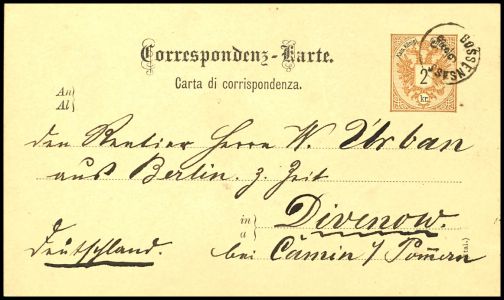 Correspondenz-Karte.
Carta di corrispondenza.
2
kr.
GOSSENSASS
An
Al
den Rentier Herrn W. Urban
aus Berlin. z. Zeit
in
a
Divenow.
Deutschland. bei Camin / Pommern